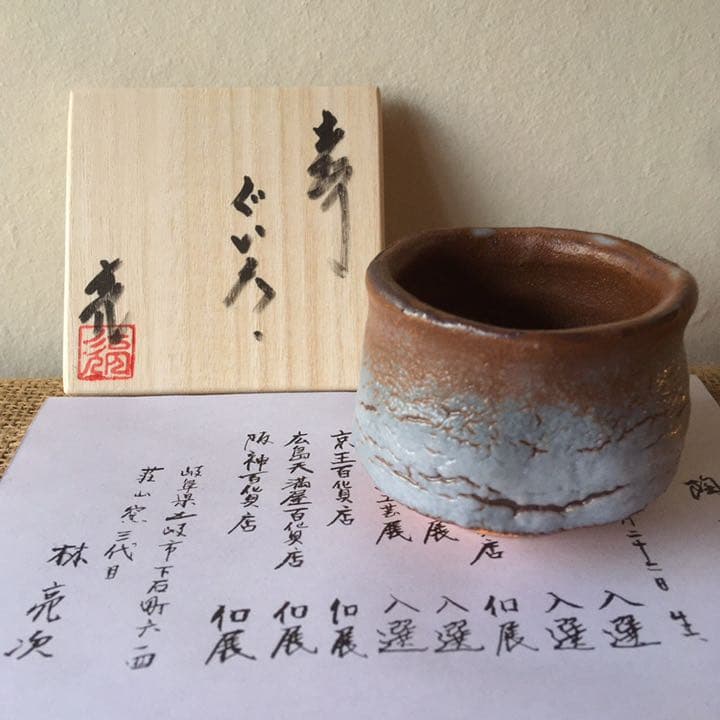 寿
ぐいろ
亮
陶
月二十二日 生
入選
入選
店 個展
展 入選
工芸展 入選
京王百貨店 個展
広島天満屋百貨店 個展
阪神百貨店 個展
岐阜県土岐市下石町六一四
荘山窯三代目
林亮次